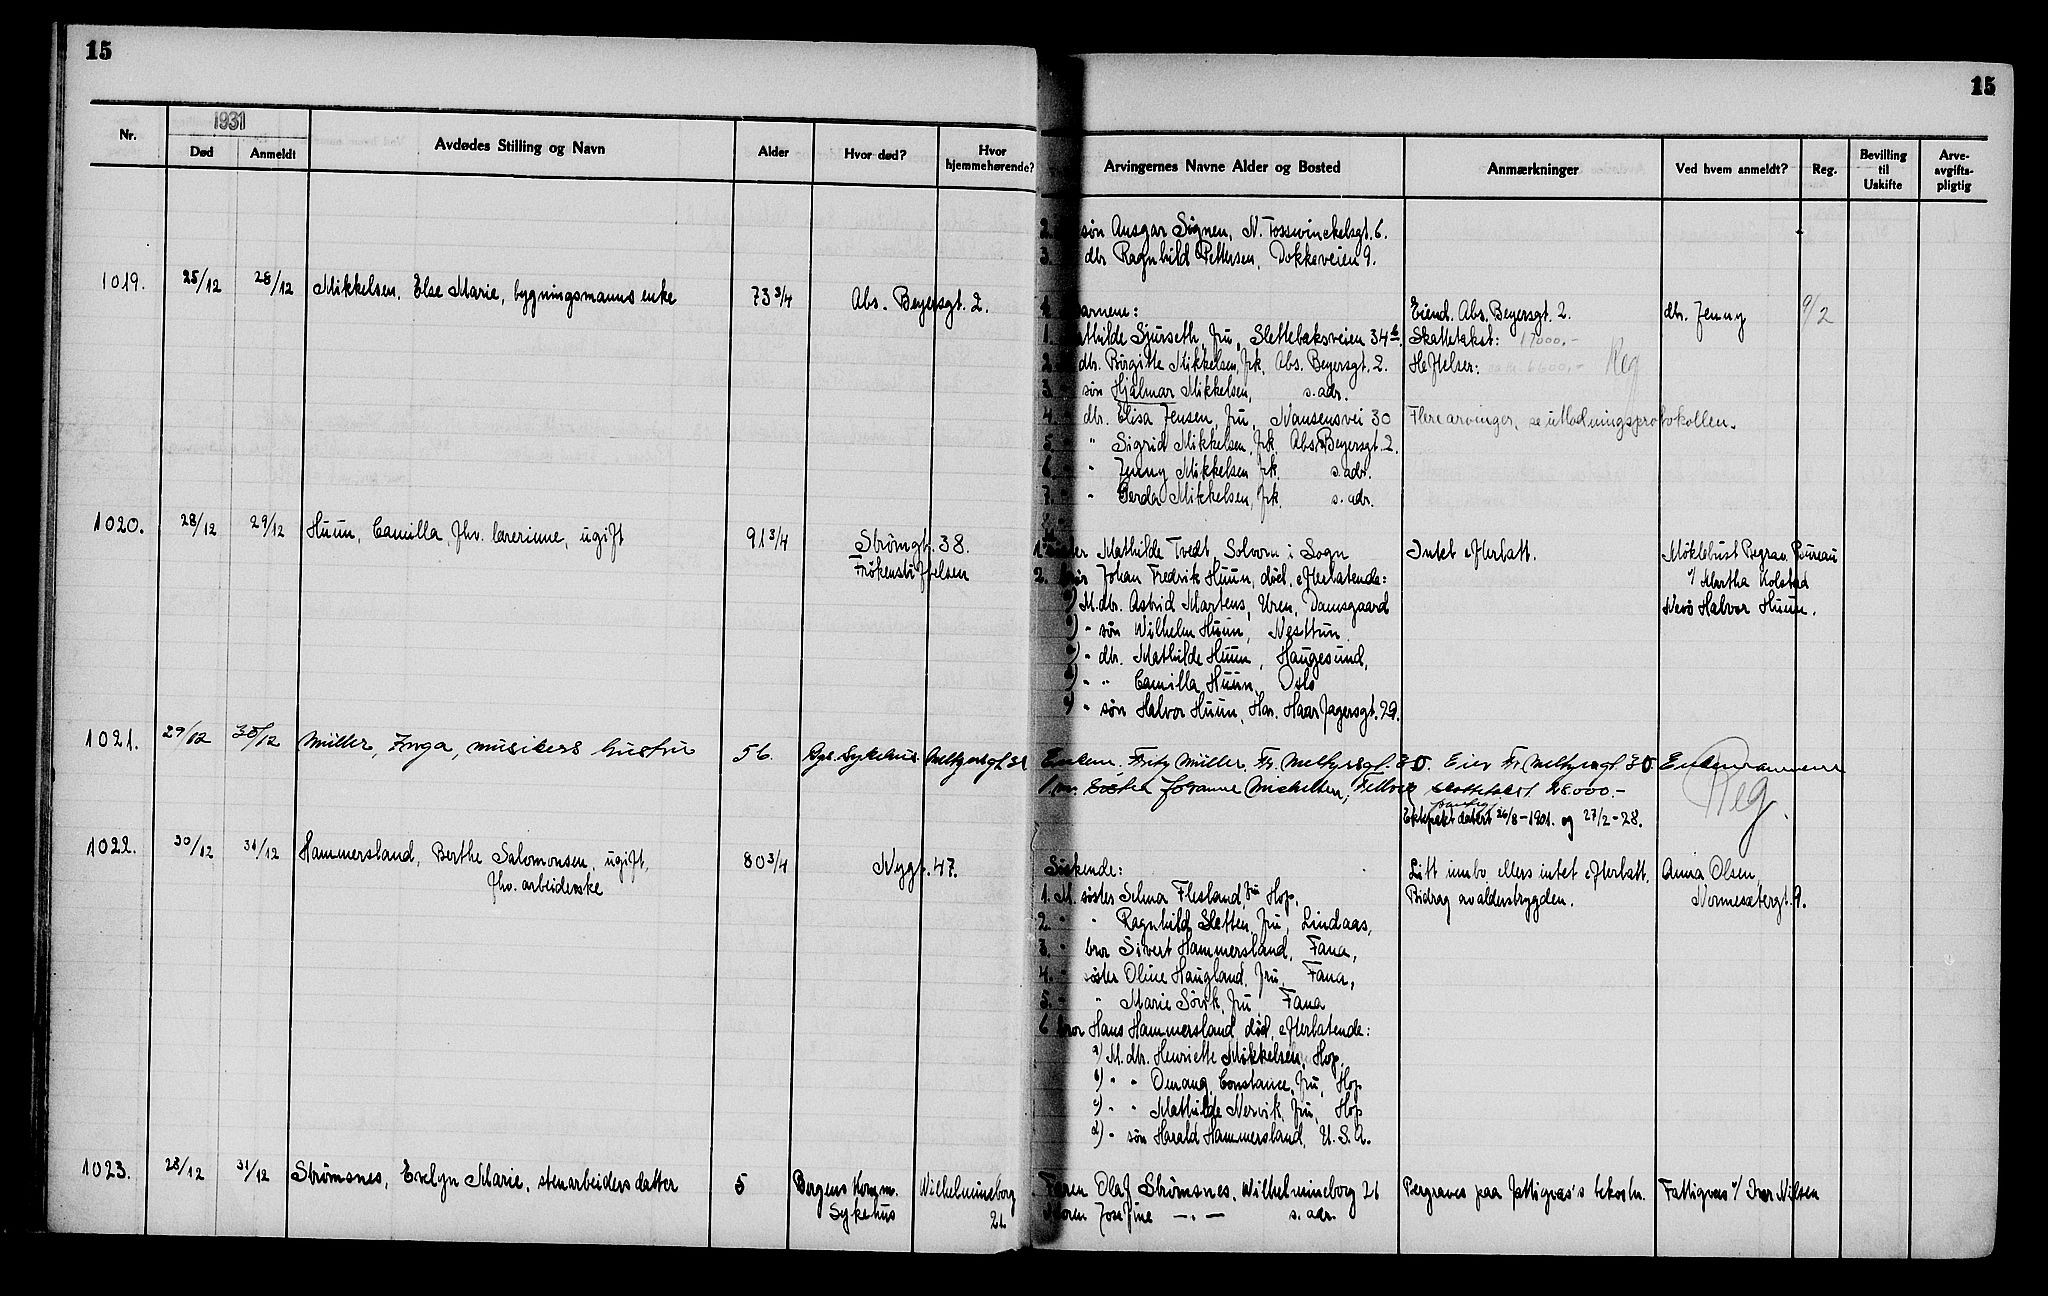 15
15
1931
Nr.
Død
Anmeldt
Avdødes Stilling og Navn
Alder
Hvor død?
Hvor hjemmehørende?
Arvingernes Navne Alder og Bosted
Anmærkninger
Ved hvem anmeldt?
Reg.
Bevilling til Uskifte
Arve-avgifts-pligtig
2. søn Ansgar Signen, N. Fosswinckelsgt. 6.
3. dtr Ragnhild Pettersen, Dokksveien 9.
1019. 25/12 28/12 Mikkelsen, Else Marie, bygningsmanns enke 73 3/4 Abs. Beyersgt. 2.
Barnene:
Eiend. Abs. Beyersgt. 2.
dtr. Jenny
9/2
1. Mathilde Sjurseth, fru, Slettebaksveien 34 b.
Skattetakst: 17000.-
2. dtr. Birgitte Mikkelsen, frk, Abs. Beyersgt. 2.
Heftelser: 6600,- Reg
3. søn Hjalmar Mikkelsen, s. adr.
4. dtr. Elisa Jensen, fru, Nansensvei 30
Flere arvinger, se utlodningsprotokollen.
5. " " Sigrid Mikkelsen, frk. Abs. Beyersgt. 2.
6. " " Jenny Mikkelsen frk. s. adr.
7. " " Gerda Mikkelsen, frk. s. adr.
1020. 28/12 29/12 Huun, Camilla, fhv. lærerinne, ugift 91 3/4 Strømgt. 38.
Frøkenstiftelsen
1. Søster Mathilde Tvedt, Solvorn i Sogn
Intet efterlatt.
Møklebust Begrav. Bureau
2. bror Johan Fredrik Huun, død, efterlatende:
v/ Martha Kolstad
a) M. dtr. Astrid Martens, Uren, Damsgaard
Nevø Halvor Huun.
b) " søn Wilhelm Huun, Nesttun.
c) " dtr. Mathilde Huun, Haugesund,
d) " " Camilla Huun, Oslo
e) " søn Halvor Huun, Har. Haarfagersgt. 29.
1021. 29/12 30/12 Müller, Inga, musikers hustru 56. Sykehus Meltzersgt 30
Enkem. Fritz Müller, Fr. Meltzersgt. 30. Eier Fr Meltzersgt. 30 Enkemannen
søster Johanne Michelsen, skattetakst 28000.-
Reg.
Ektepakt datert 26/8-1901. og 27/2-28.
1022. 30/12 31/12 Hammersland, Berthe Salomonsen, ugift, 80 3/4 Nygt. 47.
fhv. arbeiderske
Søskende:
Litt innbo, ellers intet efterlatt.
Anna Olsen,
1. M. søster Selma Flesland, fru Hop,
Bidrag av alderstrygden.
Normesætergt. 9.
2. " " Ragnhild Sletten, fru, Lindaas,
3. " bror Sivert Hammersland, Fana,
4. " søster Oline Haugland, fru, Fana,
5. " " Marie Sørvik, fru, Fana
6. bror Hans Hammersland, død, efterlatende:
a) M. dtr. Henriette Mikkelsen, Hop,
b) " " Constance, fru, Hop
c) " " Mathilde Nesvik, fru, Hop
d) " søn Harald Hammersland, U. S. A.
1023. 28/12 31/12 Strømsnes, Evelyn Marie, stenarbeiders datter 5 Bergens Komm. Sykehus Wilhelmineborg 21
Faren Olaf Strømsnes, Wilhelmineborg 21
Begraves paa fattigvæs's bekostn.
Fattigvæs v/ Iver Nilsen
Moren Josefine —"— s. adr.